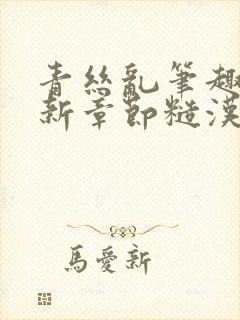 青絲亂筆趣
新章節糙漢
馬愛新